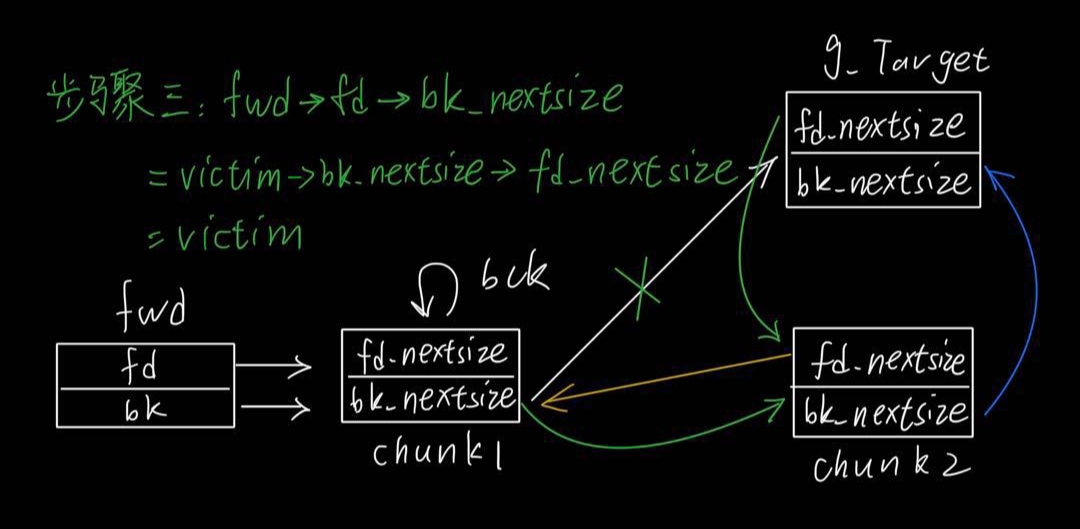 g_Target
步骤三: fwd→fd→bk_nextsize
= victim→bk_nextsize→fd_nextsize
= victim
fd_nextsize
bk_nextsize
fwd
bck
fd
bk
fd_nextsize
bk_nextsize
chunk1
fd_nextsize
bk_nextsize
chunk2